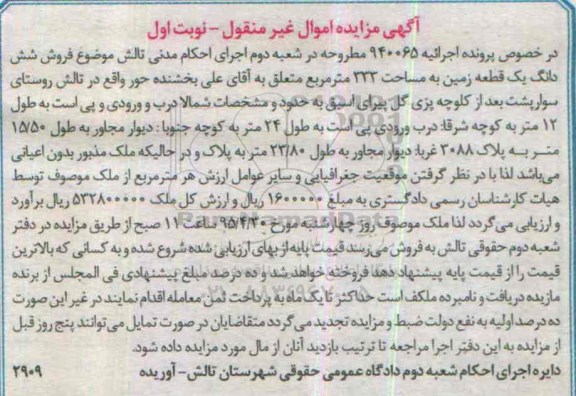 آگهی مزایده اموال غیر منقول - نوبت اول
در خصوص پرونده اجرائیه ۹۴۰۰۶۵ مطروحه در شعبه دوم اجرای احکام مدنی تالش موضوع فروش شش
دانگ یک قطعه زمین به مساحت ۳۳۳ مترمربع متعلق به آقای علی بخشنده حور واقع در تالش روستای
سوارپشت بعد از کلوچه پزی گل پیرای اسبق به حدود و مشخصات شمالا درب و ورودی و پی است به طول
۱۲ متر به کوچه شرقا: درب ورودی پی است به طول ۲۴ متر به کوچه جنوبا : دیوار مجاور به طول ۱۵/۵۰
متر به پلاک ۳۰۸۸ غربا: دیوار مجاور به طول ۲۲/۸۰ متر به پلاک و در حالیکه ملک مذبور بدون اعیانی
می‌باشد لذا با در نظر گرفتن موقعیت جغرافیایی و سایر عوامل ارزش هر مترمربع از ملک موصوف توسط
هیات کارشناسان رسمی دادگستری به مبلغ ۱۶۰۰۰۰۰ ریال و ارزش کل ملک ۵۳۲۸۰۰۰۰۰ ریال برآورد
و ارزیابی می گردد لذا ملک موصوف روز چهارشنبه مورخ ۹۵/۴/۳۰ ساعت ۱۱ صبح از طریق مزایده در دفتر
شعبه دوم حقوقی تالش به فروش می‌رسد قیمت پایه از بهای ارزیابی شده شروع شده و به کسانی که بالاترین
قیمت را از قیمت پایه پیشنهاد دهد فروخته خواهد شد و ده درصد مبلغ پیشنهادی فی المجلس از برنده
مازیده دریافت و نامبرده ملکف است حداکثر تا یک ماه به پرداخت ثمن معامله اقدام نمایند در غیر این صورت
ده درصد اولیه به نفع دولت ضبط و مزایده تجدید می گردد متقاضایان در صورت تمایل می‌توانند پنج روز قبل
از مزایده به این دفتر اجرا مراجعه تا ترتیب بازدید آنان از مال مورد مزایده داده شود.
دایره اجرای احکام شعبه دوم دادگاه عمومی حقوقی شهرستان تالش - آوریده ۲۹۰۹